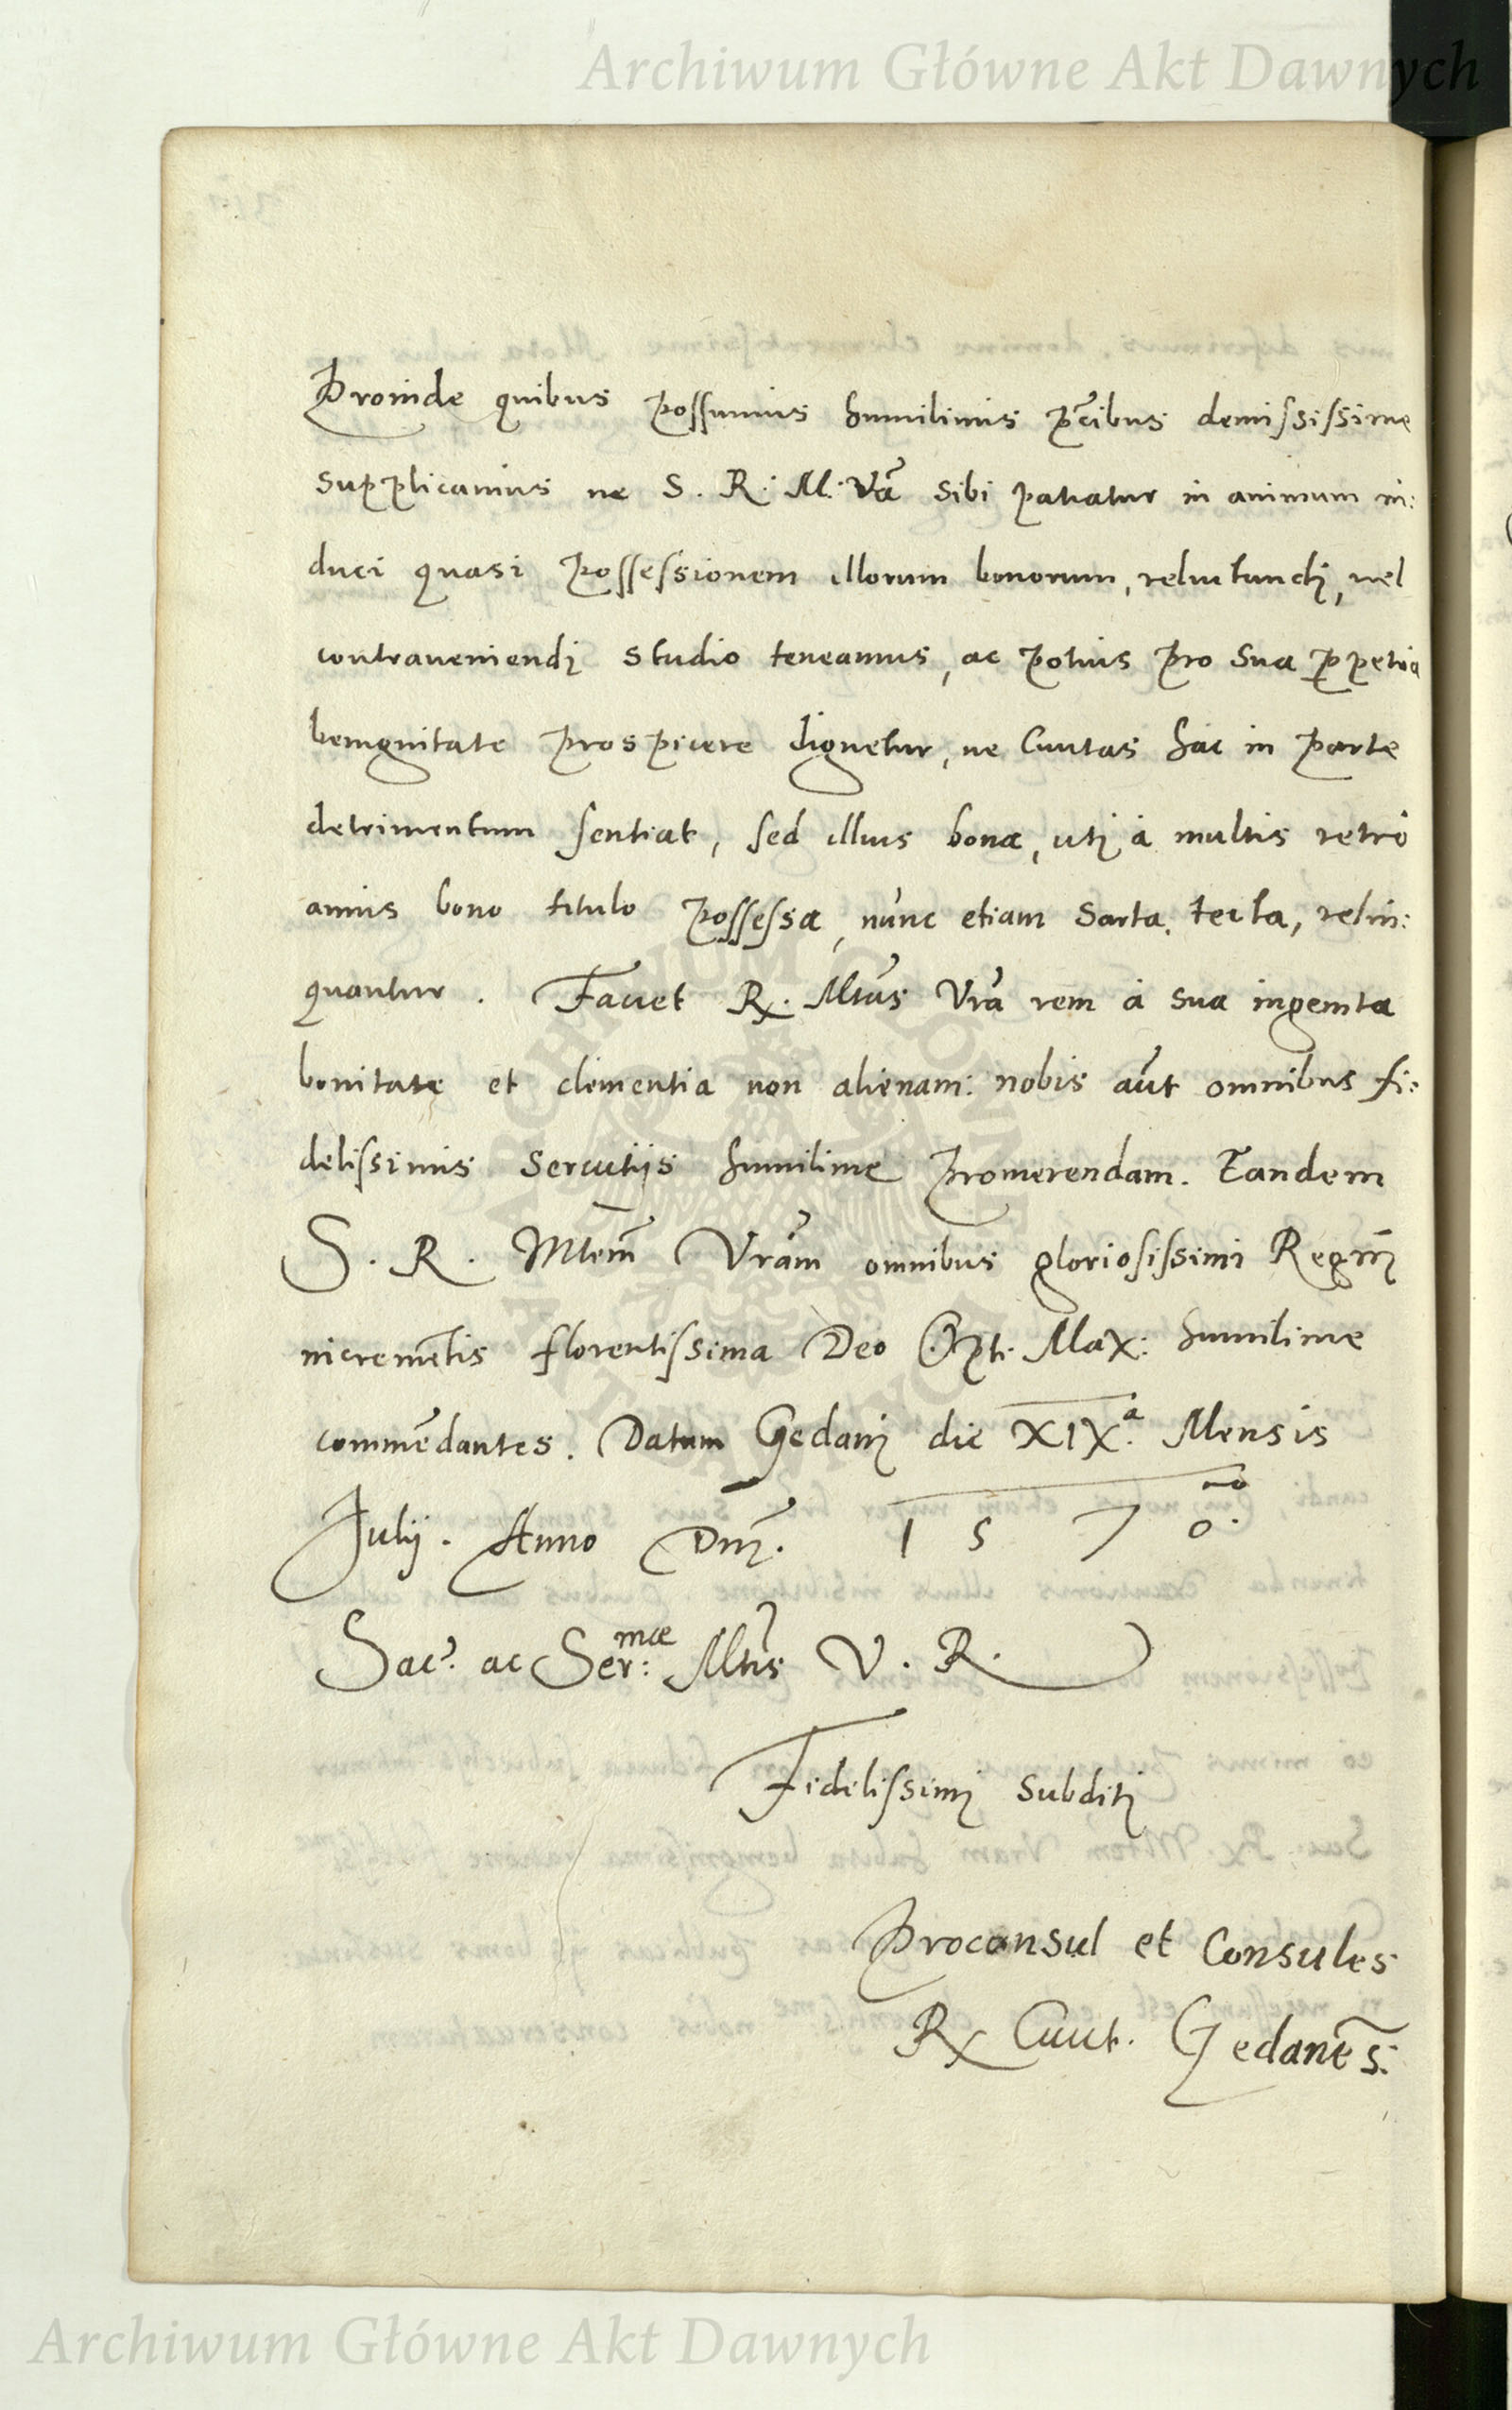 Archiwum Główne Akt Dawnych
Proinde quibus possumus humilimis p̄cibus demissisime
supplicamus ne S. R. M. Vrã sibi patiatur in animum in:
duci quasi possessionem illorum bonorum, reluctandi, vel
contraveniendi studio teneamus, ac potius pro sua ꝑpetua
benignitate prospicere dignetur, ne Civitas hac in parte
detrimentum sentiat, sed illius bona, uti à multis retrò
annis bono titulo possessa, nunc etiam sarta, tecta, relin:
quantur. Faciet R. Mtas Vrã rem à sua ingenita
bonitate et clementia non alienam: nobis aũt omnibus fi:
delissimis servitijs humilime promerendam. Tandem
S. R. Mtem̃ Vrãm omnibus gloriosissimi Regni
incremẽtis florentissima Deo Opt. Max: humilime
commẽdantes. Datum Gedani die XIXa. Mensis
Julij. Anno Dni. 1570mo.
Sac. ac Ser:mae Mtis V. R.
Fidelissimi subditi
Proconsul et Consules
R Civit. Gedanẽs:
Archiwum Główne Akt Dawnych